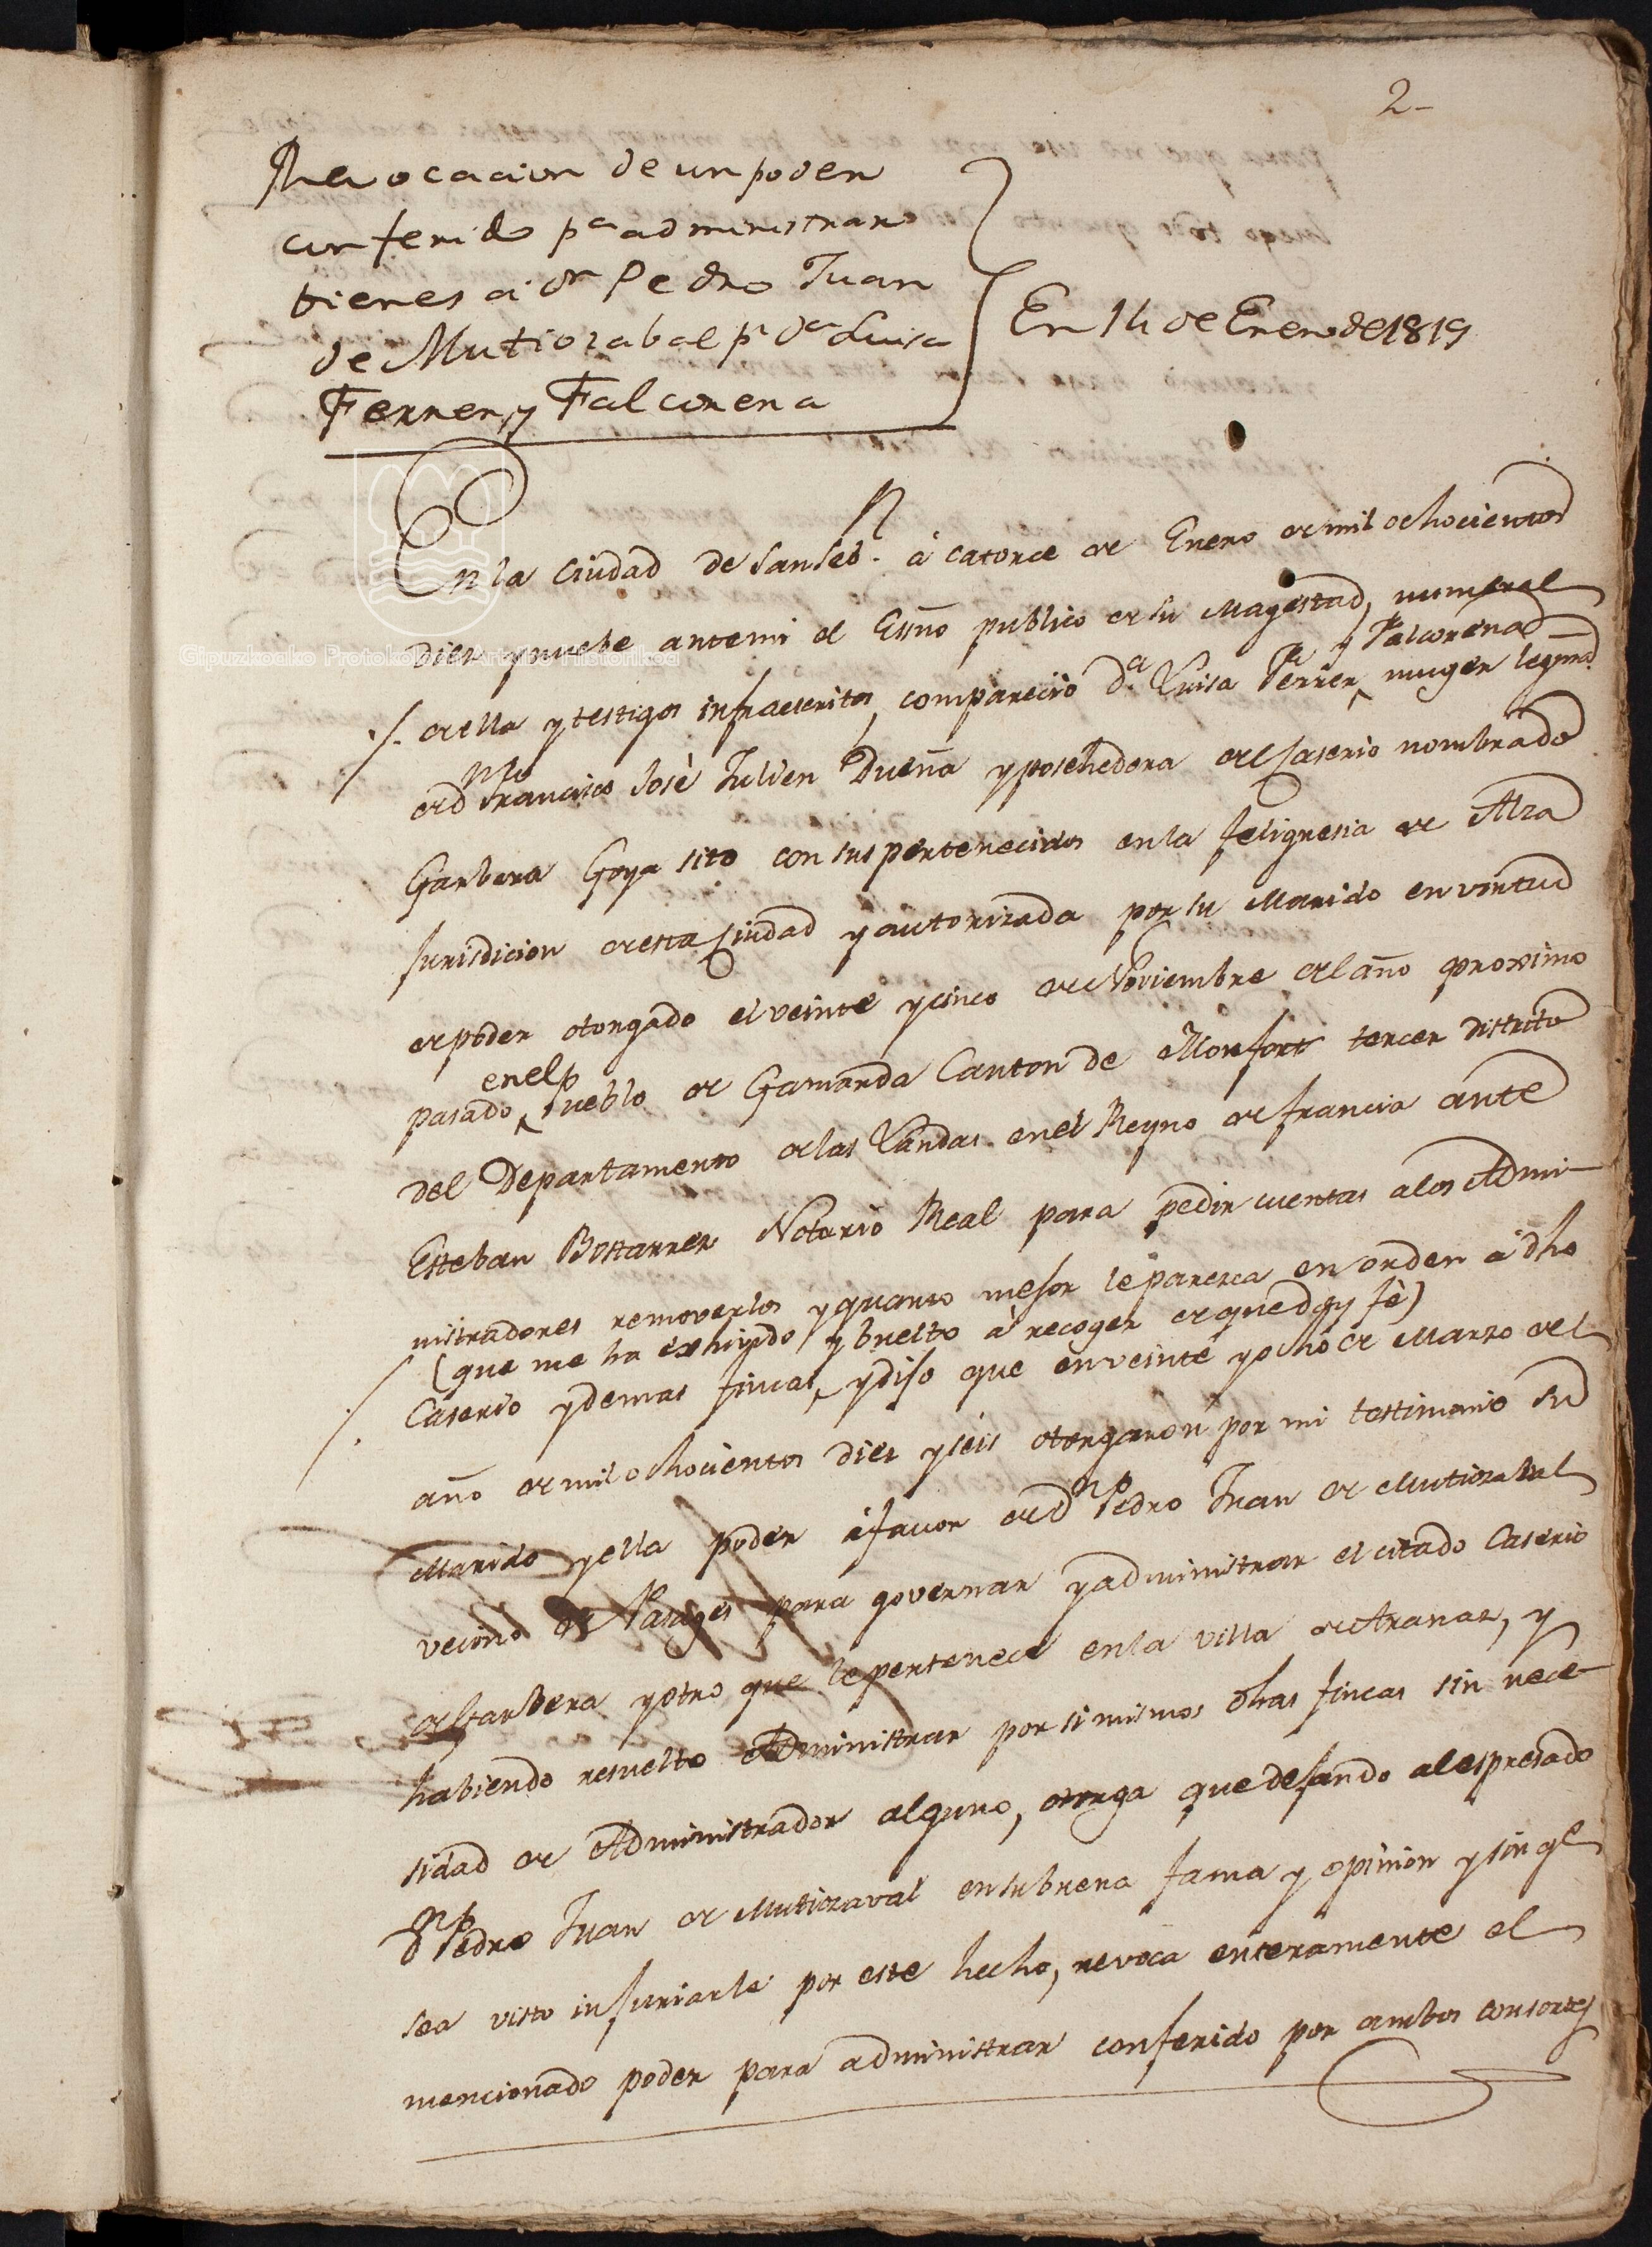 2-
Revocacion de un poder
conferido pa administrar
bienes a Dn Pedro Juan
de Mutiozabal pr Da Luisa
Ferrer y Falcorena
En 14 de Enero de 1819
En la Ciudad de San Sebn. à catorce de Enero de mil ochocientos
Diez y nueve ante mi el Essno publico de su Magestad, numeral
y Falcorena
de ella y testigos infraescritos, compareció Da. Luisa Ferrer, muger legma.
de Dn Francisco José Julien Dueña y poshedora del Caserio nombrado
Garbera Goya sito con sus pertenecidos en la feligresia de Alza
Jurisdicion de esta Ciudad y autorizada por su Marido en virtud
de poder otorgado el veinte y cinco de Noviembre del año proximo
en el p
pasado pueblo de Gamarda Canton de Monfort tercer Distrito
del Departamento de las Landas en el Reyno de francia ante
Esteban Bostarrer Notario Real para pedir cuentas a los Admi-
nistradores removerlos y quanto mejor le paresca en orden á dho
(que me ha exhivido y buelto à recoger de que doy fè)
Caserio y demas fincas, y dijo que en veinte y ocho de Marzo del
año de mil ochocientos diez y seis otorgaron por mi testimonio su
Marido y ella poder á favor de Dn Pedro Juan de Mutiozabal
vecino de Pasages para governar y administrar el citado Caserio
de Garbera y otro que le pertenece en la villa de Aranaz, y
habiendo resuelto Administrar por si mismos dhas fincas sin nece-
sidad de Administrador alguno, otorga que dejando al espresado
Dn Pedro Juan de Mutiozaval en su buena fama y opinion y sin qe
sea visto injuriarle por este hecho, revoca enteramente el
mencionado poder para administrar conferido por ambos consortes
Gipuzkoako Protokoloen Artxibo Historikoa